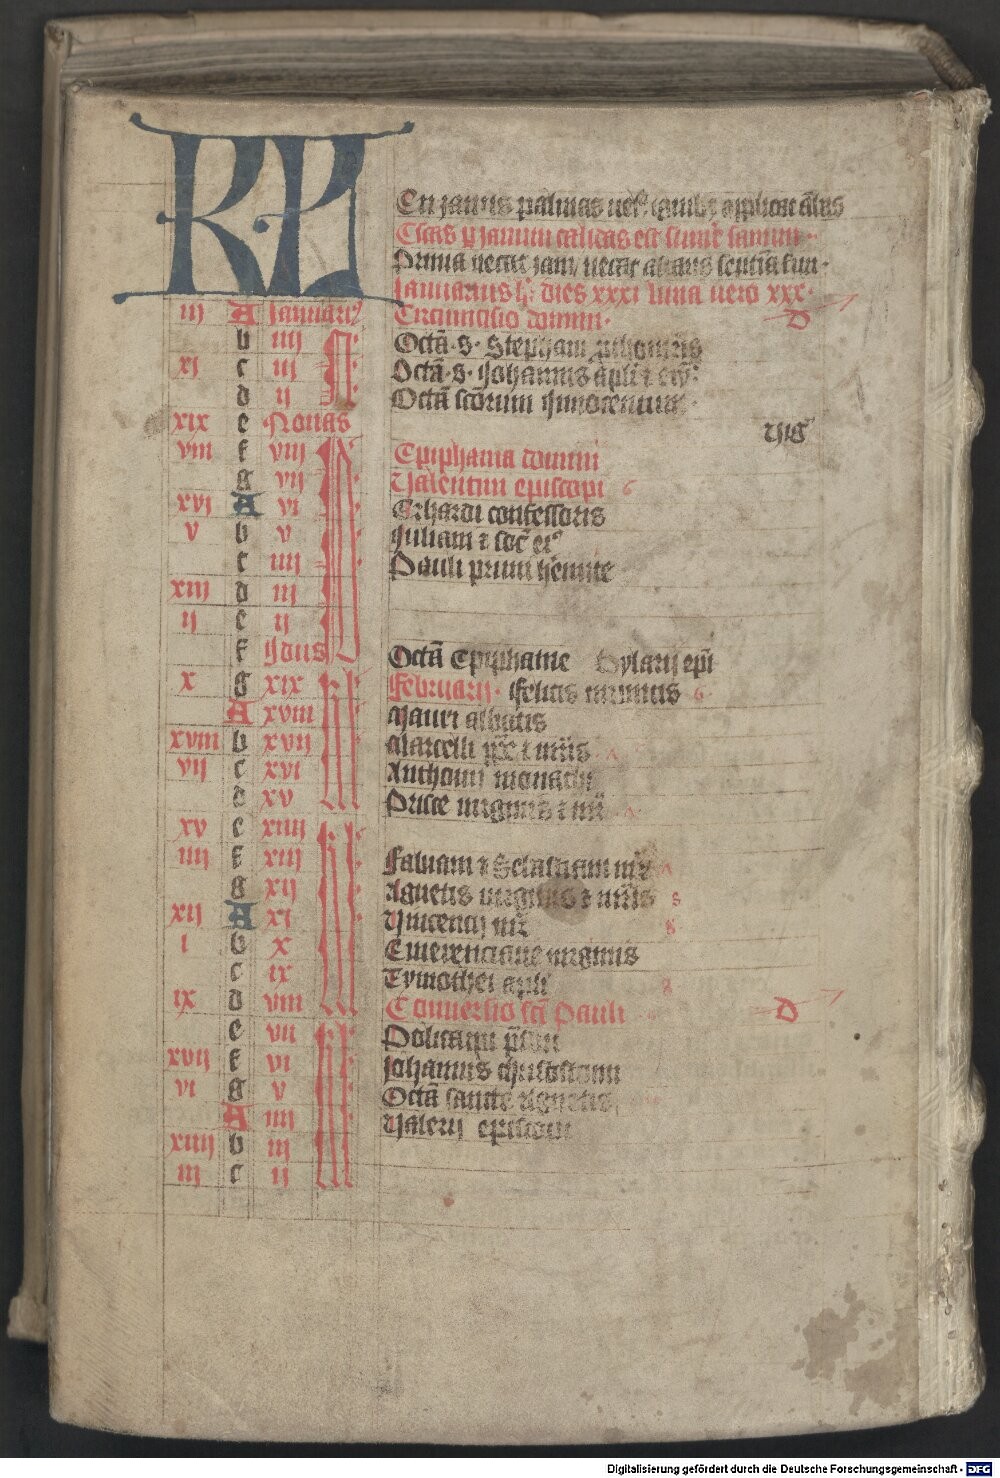 KL
En janus
Escas p Janum calidas est sumere sanum
Prima necat
Januarius hꝫ dies xxxi luna vero xxx
iij A Januarij Circumcisio domini D
b iiij N Octā s Stephani
xj c iij Octā s Johannis apli ⁊
d ij Octā scōrum Innocentium
xix e Nonas vig
viij f viij Epiphania domini
g vij Valentini episcopi 6
xvj A vi Erhardi confessoris
v b v Juliani ⁊ soc eiꝰ
c iiij Pauli primi hēmite
xiij d iij
ij e ij
f Jdus Octā Epiphanie Hylarij epi
x g xix Kl Februarij Felicis in pincis 6
A xviii Mauri abbatis
xviii b xvij Marcelli ppe ⁊ mris
vij c xvi Anthonij monachi
d xv Prisce virginis ⁊ mr
xv e xiiij Kl
iiij f xiij Fabiani ⁊ Sebastiani mr
g xij Agnetis virginis ⁊ mris 8
xij A xi Vincencij mr 8
i b x Emerenciane virginis
c ix Tymothei apli 8
ix d viij Conuersio scī Pauli D
e vij Kl Policarpi
xvij f vi Johannis crisostomi
vi g v Octā sancte Agnetis
A iiij Valerij episcopi
xiiij b iij
iij c ij
Digitalisierung gefördert durch die Deutsche Forschungsgemeinschaft - DFG